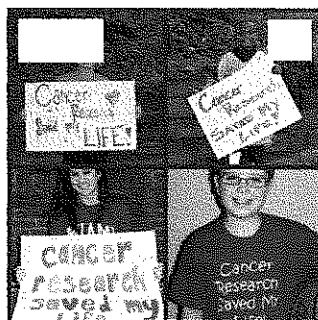 Cancer
Research
Saved My
LIFE!
Cancer
Research
SAVED MY
LIFE!
cancer
research
saved my
Life
Cancer
Research
Saved My